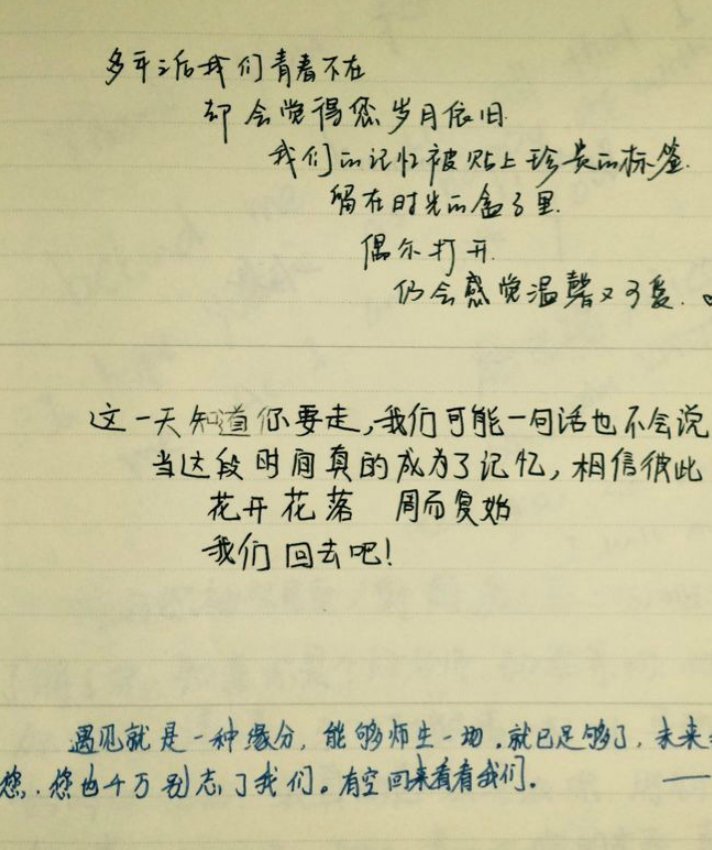 多年之后我们青春不在
却会觉得您岁月依旧.
我们的记忆被贴上珍贵的标签.
留在时光的盒子里.
偶尔打开.
仍会感觉温馨又可爱.
这一天知道你要走,我们可能一句话也不会说
当这段时间真的成为了记忆,相信彼此
花开花落 周而复始
我们回去吧!
遇见就是一种缘分,能够师生一场,就已足够了,未来
您.您也千万别忘了我们。有空回来看看我们。 ——